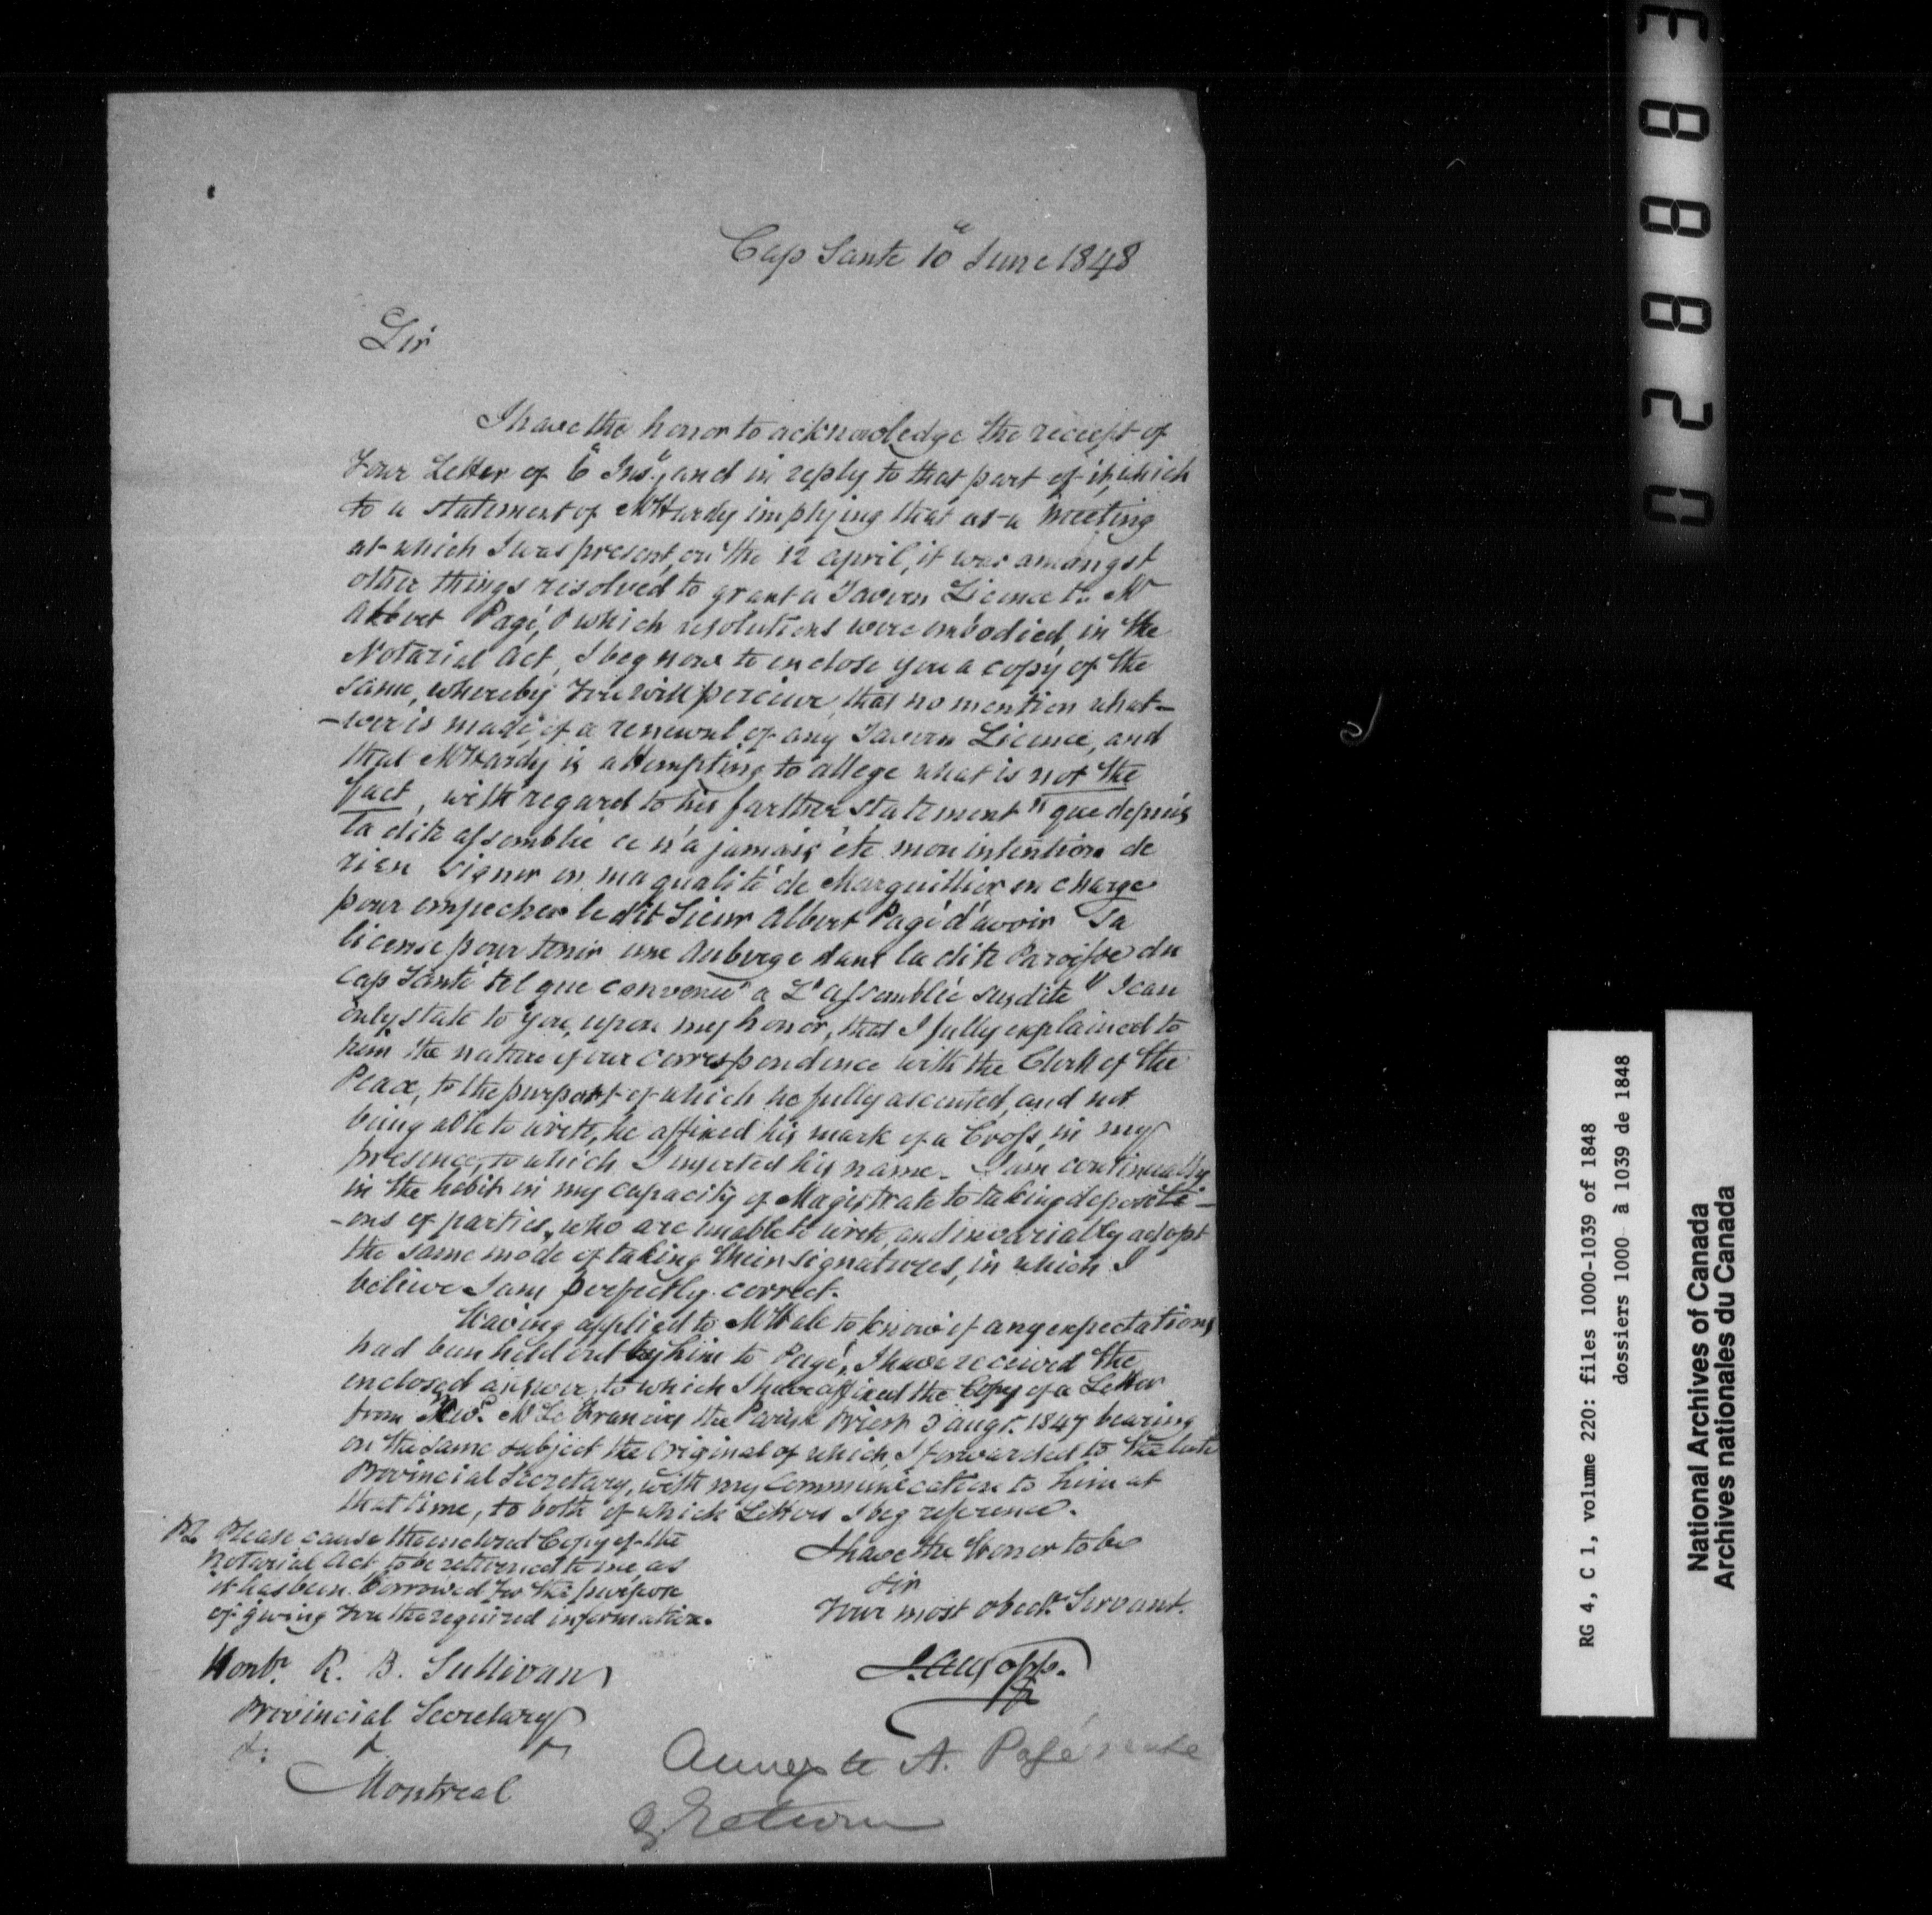 Cap Sante 10th June 1848
Sir
I have the honor to acknowledge the receipt of
Your Letter of 6th Inst, and in reply to that part of it, which
to a statement of Mr Hardy implying that at a Meeting
at which I was present, on the 12 april, it was amongst
other things resolved to grant a Tavern Licence to Mr
Albert Pagé, & which resolutions were embodied, in the
Notarial Act, I beg now to enclose you a copy of the
same, whereby You will perceive, that no mention what-
-ever is made of a renewal of any Tavern Licence, and
that Mr Hardy is attempting to allege what is not the
fact, with regard to his further statement "que depuis
la dite assemblée ce n'a jamais été mon intention de
rien signer en ma qualité de Marguillier en charge
pour empecher le dit Sieur Albert Pagé d'avoir sa
license pour tenir une Auberge dans la dite Paroisse du
Cap Santé tel que convenu a L'assemblée susdite" I can
only state to you, upon my honor, that I fully explained to
him the nature of our correspondence with the Clerk of the
Peace, to the purport of which he fully ascented, and not
being able to write, he affixed his mark of a Cross, in my
presence, to which I inserted his name. I am continually
in the habit in my capacity of Magistrate to taking depositi-
-ons of parties, who are unable to write, and invariably adopt
the same mode of taking their signatures, in which I
believe I am perfectly correct.
Having applied to Mr Hale to know if any expectations
had been held out by him to Pagé, I have received the
enclosed answer, to which I have affixed the Copy of a Letter
from Revd. Mr Le Francois the Parish Priest 3 augt. 1847 bearing
on the same subject the original of which, I forwarded to the late
Provincial Secretary, with my Communication to him at
that time, to both of which Letters I beg reference.
Please cause the enclosed Copy of the
Notarial Act, to be returned to me, as
it has been borrowed for the purpose
of giving You the required information.
I have the Honor to be
Sir
Your most obedt. Servant.
J. Allsopp.
Honbe. R. B. Sullivan
Provincial Secretary
& & &
Montreal
A. Pagé
Return
02 8 8 8 3
RG 4, C 1, volume 220: files 1000-1039 of 1848
dossiers 1000 à 1039 de 1848
National Archives of Canada
Archives nationales du Canada